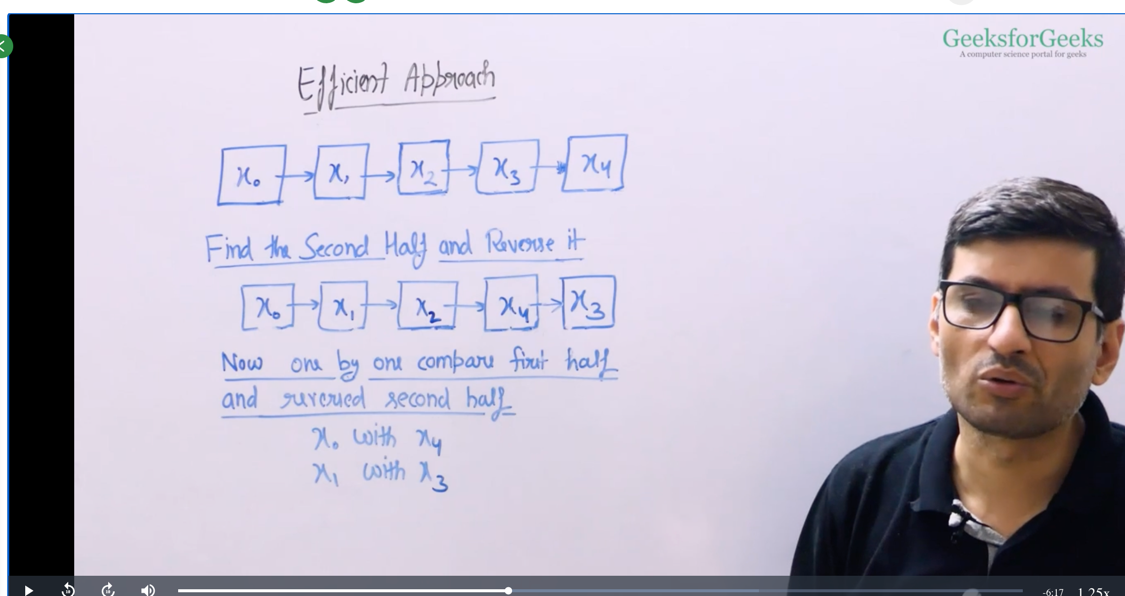 GeeksforGeeks
A computer science portal for geeks
Efficient Approach
x₀ x₁ x₂ x₃ x₄
Find the Second Half and Reverse it
x₀ x₁ x₂ x₄ x₃
Now one by one compare first half
and reversed second half
x₀ with x₄
x₁ with x₃
-6:17 1.25x